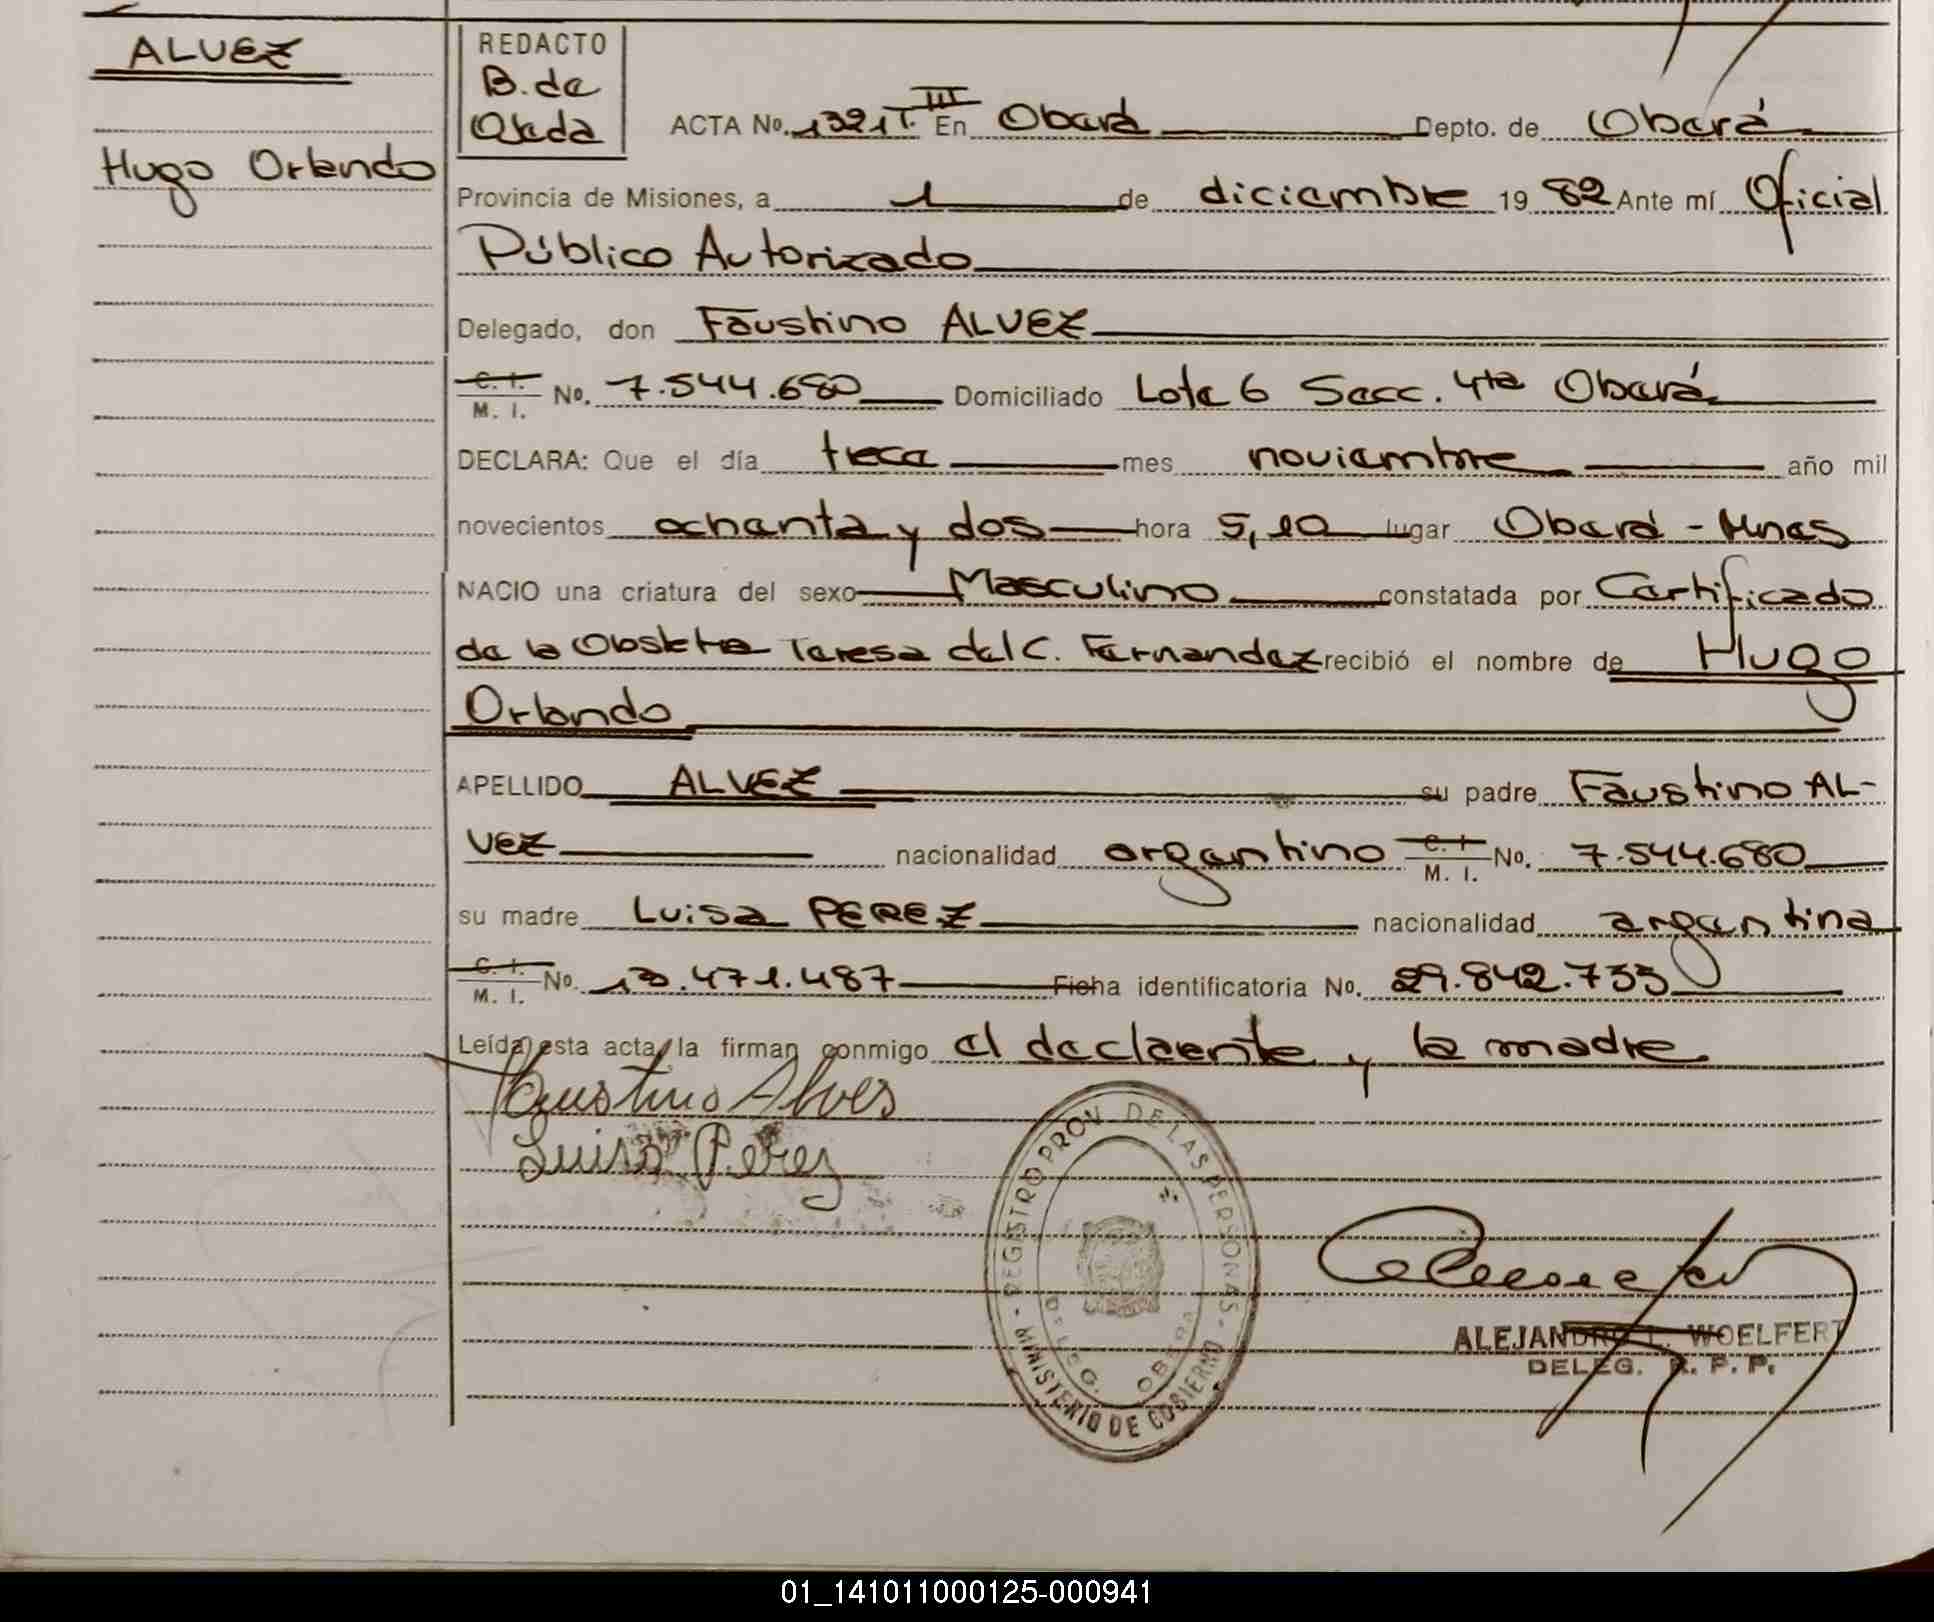 ALVEZ
Hugo Orlando
REDACTO
B. de
Ojeda
ACTA No. 1321 T. III En Oberá Depto. de Oberá
Provincia de Misiones, a 1 de diciembre 19 82 Ante mí Oficial
Público Autorizado
Delegado, don Faustino ALVEZ
C. I. M. I. No. 7.544.680 Domiciliado Lote 6 Secc. 4ta Oberá
DECLARA: Que el día trece mes noviembre año mil
novecientos ochenta y dos hora 5,10 lugar Oberá - Mnes
NACIO una criatura del sexo Masculino constatada por Certificado
de la Obstetra Teresa del C. Fernandez recibió el nombre de Hugo
Orlando
APELLIDO ALVEZ su padre Faustino AL-
VEZ nacionalidad argentino C. I. M. I. No. 7.544.680
su madre Luisa PEREZ nacionalidad argentina
C. I. M. I. No. 13.471.487 Ficha identificatoria No. 29.842.733
Leída esta acta, la firman conmigo el declarente y la madre
Faustino Alves
Luisa Perez
REGISTRO PROV. DE LAS PERSONAS - MINISTERIO DE GOBIERNO
DELEG. OBERA
ALEJANDRO L. WOELFERT
DELEG. R. P. P.
01_141011000125-000941